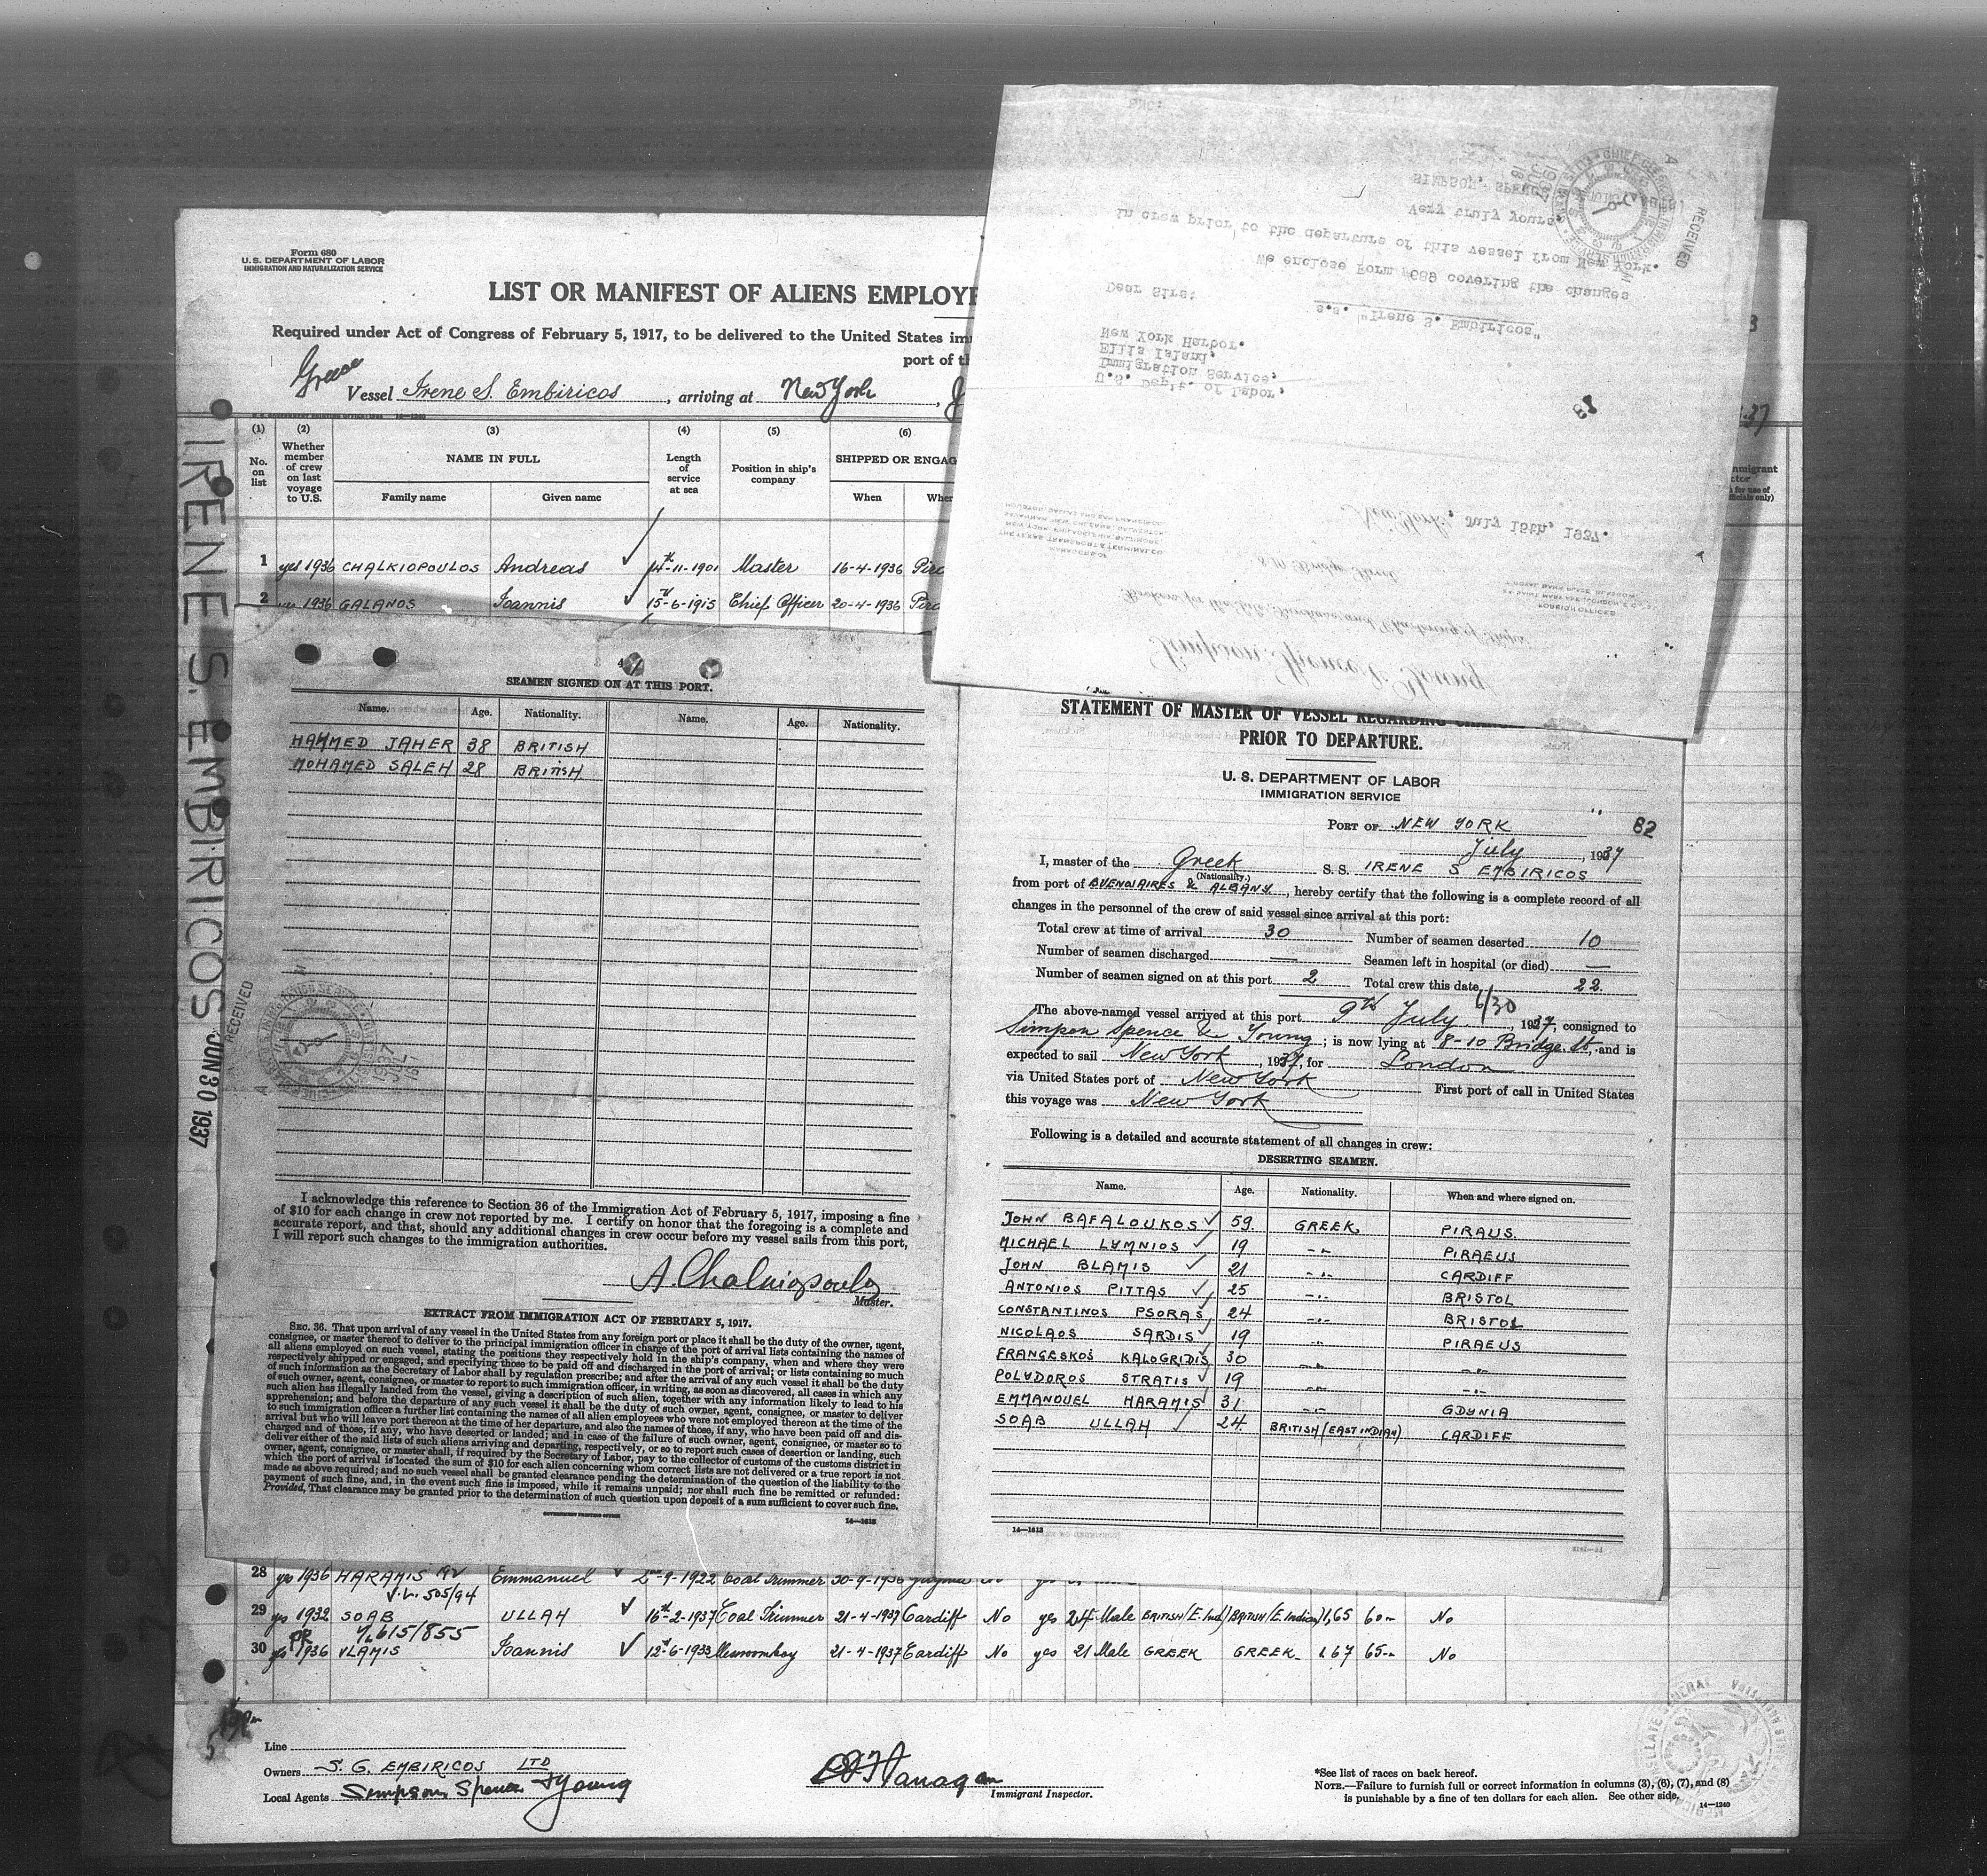 Form 680
U.S. DEPARTMENT OF LABOR
IMMIGRATION AND NATURALIZATION SERVICE
LIST OR MANIFEST OF ALIENS EMPLOYE
Required under Act of Congress of February 5, 1917, to be delivered to the United States im
port of th
Greece
Vessel Irene S. Embiricos, arriving at New York, J
(1) (2) (3) (4) (5) (6)
No. on list
Whether member of crew on last voyage to U.S.
NAME IN FULL
Family name
Given name
Length of service at sea
Position in ship's company
SHIPPED OR ENGAG
When
Wher
1 yes 1936 CHALKIOPOULOS Andreas 14th-11-1901 Master 16-4-1936 Pire
2 yes 1936 GALANOS Ioannis 15th-6-1915 Chief Officer 20-4-1936 Pire
IRENE S. EMBIRICOS JUN 30 1937
Simpson, Spence & Young
Brokers for the Sale, Purchase and Chartering of Ships
8-10 Bridge Street
FOREIGN OFFICES
MANAGERS OF
THE TEXAS TRANSPORT & TERMINAL CO.
NEW YORK, PHILADELPHIA, BALTIMORE,
SAVANNAH, NEW ORLEANS, GALVESTON,
HOUSTON, DALLAS AND SAN FRANCISCO
New York, July 15th, 1937.
U.S. Dept. of Labor,
Immigration Service,
Ellis Island,
New York Harbor.
s.s. "Irene S. Embiricos"
Dear Sirs:
We enclose Form #689 covering the changes
in crew prior to the departure of this vessel from New York.
Very truly yours,
SIMPSON, SPENCE
ENC:
RECEIVED
SEAMEN SIGNED ON AT THIS PORT.
Name. Age. Nationality. Name. Age. Nationality.
HAMMED JAHER 38 BRITISH
MOHAMED SALEH 28 BRITISH
RECEIVED
I acknowledge this reference to Section 36 of the Immigration Act of February 5, 1917, imposing a fine
of $10 for each change in crew not reported by me. I certify on honor that the foregoing is a complete and
accurate report, and that, should any additional changes in crew occur before my vessel sails from this port,
I will report such changes to the immigration authorities.
A. Chalkiopoulos
Master.
EXTRACT FROM IMMIGRATION ACT OF FEBRUARY 5, 1917.
SEC. 36. That upon arrival of any vessel in the United States from any foreign port or place it shall be the duty of the owner, agent,
consignee, or master thereof to deliver to the principal immigration officer in charge of the port of arrival lists containing the names of
all aliens employed on such vessel, stating the positions they respectively hold in the ship's company, when and where they were
respectively shipped or engaged, and specifying those to be paid off and discharged in the port of arrival; or lists containing so much
of such information as the Secretary of Labor shall by regulation prescribe; and after the arrival of any such vessel it shall be the duty
of such owner, agent, consignee, or master to report to such immigration officer, in writing, as soon as discovered, all cases in which any
such alien has illegally landed from the vessel, giving a description of such alien, together with any information likely to lead to his
apprehension; and before the departure of any such vessel it shall be the duty of such owner, agent, consignee, or master to deliver
to such immigration officer a further list containing the names of all alien employees who were not employed thereon at the time of the
arrival but who will leave port thereon at the time of her departure, and also the names of those, if any, who have been paid off and dis-
charged and of those, if any, who have deserted or landed; and in case of the failure of such owner, agent, consignee, or master so to
deliver either of the said lists of such aliens arriving and departing, respectively, or so to report such cases of desertion or landing, such
owner, agent, consignee, or master shall, if required by the Secretary of Labor, pay to the collector of customs of the customs district in
which the port of arrival is located the sum of $10 for each alien concerning whom correct lists are not delivered or a true report is not
made as above required; and no such vessel shall be granted clearance pending the determination of the question of the liability to the
payment of such fine, and, in the event such fine is imposed, while it remains unpaid; nor shall such fine be remitted or refunded:
Provided, That clearance may be granted prior to the determination of such question upon deposit of a sum sufficient to cover such fine.
GOVERNMENT PRINTING OFFICE
14—1613
STATEMENT OF MASTER OF VESSEL REGARDING CHAN
PRIOR TO DEPARTURE.
U. S. DEPARTMENT OF LABOR
IMMIGRATION SERVICE
82
PORT OF NEW YORK
July, 1937
I, master of the Greek S. S. IRENE S EMBIRICOS
(Nationality.)
from port of BUENAIRES & ALBANY, hereby certify that the following is a complete record of all
changes in the personnel of the crew of said vessel since arrival at this port:
Total crew at time of arrival 30 Number of seamen deserted 10
Number of seamen discharged — Seamen left in hospital (or died) —
Number of seamen signed on at this port 2 Total crew this date 22
The above-named vessel arrived at this port 9th July 6/30, 1937, consigned to
Simpson Spence & Young; is now lying at 8-10 Bridge St, and is
expected to sail New York, 1937, for London
via United States port of New York First port of call in United States
this voyage was New York
Following is a detailed and accurate statement of all changes in crew:
DESERTING SEAMEN.
Name. Age. Nationality. When and where signed on.
JOHN BAFALOUKOS 59 GREEK PIRAUS.
MICHAEL LYMNIOS 19 -"- PIRAEUS
JOHN BLAMIS 21 -"- CARDIFF
ANTONIOS PITTAS 25 -"- BRISTOL
CONSTANTINOS PSORAS 24 -"- BRISTOL
NICOLAOS SARDIS 19 -"- PIRAEUS
FRANGESKOS KALOGRIDIS 30 -"- -"-
POLYDOROS STRATIS 19 -"- -"-
EMMANOUEL HARAMIS 31 -"- GDYNIA
SOAB ULLAH 24 BRITISH (EAST INDIAN) CARDIFF
14—1613
28 yes 1936 HARAMIS Emmanuel 2nd-9-1922 Coal Trimmer 30-9-1936
V.L. 505/94
29 yes 1932 SOAB ULLAH 16th-2-1937 Coal Trimmer 21-4-1937 Cardiff No yes 24 Male BRITISH/(E.Ind) BRITISH/(E.Indian) 1,65 60 No
PR V/L 615/855
30 yes 1936 VLAMIS Ioannis 12th-6-1933 Messroomboy 21-4-1937 Cardiff No yes 21 Male GREEK GREEK 1.67 65 No
Line
Owners S. G. EMBIRICOS LTD
Local Agents Simpson Spence & Young
Immigrant Inspector.
*See list of races on back hereof.
NOTE.—Failure to furnish full or correct information in columns (3), (6), (7), and (8)
is punishable by a fine of ten dollars for each alien. See other side.
14—1240